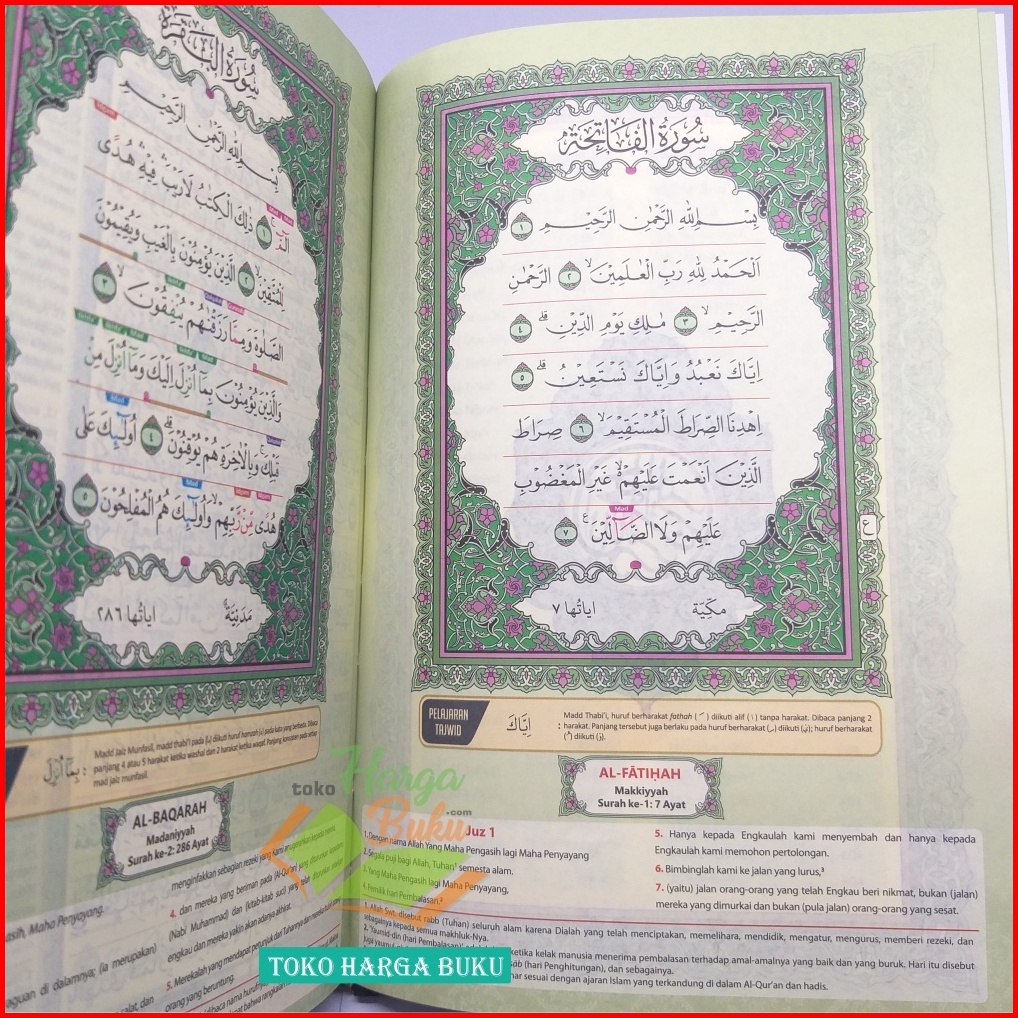 سُوْرَةُ الْفَاتِحَةِ
بِسْمِ اللّٰهِ الرَّحْمٰنِ الرَّحِيْمِ ١
اَلْحَمْدُ لِلّٰهِ رَبِّ الْعٰلَمِيْنَۙ ٢ الرَّحْمٰنِ
الرَّحِيْمِۙ ٣ مٰلِكِ يَوْمِ الدِّيْنِۗ ٤
اِيَّاكَ نَعْبُدُ وَاِيَّاكَ نَسْتَعِيْنُۗ ٥
اِهْدِنَا الصِّرَاطَ الْمُسْتَقِيْمَۙ ٦ صِرَاطَ
الَّذِيْنَ اَنْعَمْتَ عَلَيْهِمْۙ غَيْرِ الْمَغْضُوْبِ
Mad
عَلَيْهِمْ وَلَا الضَّاۤلِّيْنَ ࣖ ٧
ع
مَكِّيَّة اٰيَاتُها ٧
PELAJARAN TAJWID
اِيَّاكَ
Madd Thabi'i, huruf berharakat fathah (ـَ) diikuti alif (ا) tanpa harakat. Dibaca panjang 2
harakat. Panjang tersebut juga berlaku pada huruf berharakat (ـِ) diikuti (ي); huruf berharakat
(ـُ) diikuti (و).
AL-FĀTIḤAH
Makkiyyah
Surah ke-1: 7 Ayat
Juz 1
1. Dengan nama Allah Yang Maha Pengasih lagi Maha Penyayang
2. Segala puji bagi Allah, Tuhan¹ semesta alam.
3. Yang Maha Pengasih lagi Maha Penyayang,
4. Pemilik hari Pembalasan.²
5. Hanya kepada Engkaulah kami menyembah dan hanya kepada
Engkaulah kami memohon pertolongan.
6. Bimbinglah kami ke jalan yang lurus,³
7. (yaitu) jalan orang-orang yang telah Engkau beri nikmat, bukan (jalan)
mereka yang dimurkai dan bukan (pula jalan) orang-orang yang sesat.
1. Allah Swt. disebut rabb (Tuhan) seluruh alam karena Dialah yang telah menciptakan, memelihara, mendidik, mengatur, mengurus, memberi rezeki, dan
sebagainya kepada semua makhluk-Nya.
2. Yaumid-din (hari Pembalasan) ketika kelak manusia menerima pembalasan terhadap amal-amalnya yang baik dan yang buruk. Hari itu disebut
juga (hari Penghitungan), dan sebagainya.
sesuai dengan ajaran Islam yang terkandung di dalam Al-Qur'an dan hadis.
سُوْرَةُ الْبَقَرَةِ
بِسْمِ اللّٰهِ الرَّحْمٰنِ الرَّحِيْمِ
الۤمّۤ ۚ ١ ذٰلِكَ الْكِتٰبُ لَا رَيْبَۛ فِيْهِۛ هُدًى
لِّلْمُتَّقِيْنَۙ ٢ الَّذِيْنَ يُؤْمِنُوْنَ بِالْغَيْبِ وَيُقِيْمُوْنَ
الصَّلٰوةَ وَمِمَّا رَزَقْنٰهُمْ يُنْفِقُوْنَۙ ٣
وَالَّذِيْنَ يُؤْمِنُوْنَ بِمَآ اُنْزِلَ اِلَيْكَ وَمَآ اُنْزِلَ مِنْ
قَبْلِكَۚ وَبِالْاٰخِرَةِ هُمْ يُوْقِنُوْنَۗ ٤ اُولٰۤىِٕكَ عَلٰى
هُدًى مِّنْ رَّبِّهِمْۙ وَاُولٰۤىِٕكَ هُمُ الْمُفْلِحُوْنَ ٥
مَدَنِيَّة اٰيَاتُها ٢٨٦
بِمَآ اُنْزِلَ :
Madd Jaiz Munfasil, madd thabi'i pada (ـا) diikuti huruf hamzah (ء) pada kata yang berbeda. Dibaca
panjang 4 atau 5 harakat ketika washal dan 2 harakat ketika waqaf. Panjang konsisten pada setiap
mad jaiz munfasil.
AL-BAQARAH
Madaniyyah
Surah ke-2: 286 Ayat
menginfakkan sebagian rezeki yang Kami anugerahkan kepada mereka,
4. dan mereka yang beriman pada (Al-Qur'an) yang diturunkan kepadamu
(Nabi Muhammad) dan (kitab-kitab suci) yang telah diturunkan sebelum
engkau dan mereka yakin akan adanya akhirat.
5. Merekalah yang mendapat petunjuk dari Tuhannya dan mereka itulah
orang-orang yang beruntung.
Maha Penyayang.
di dalamnya; (ia merupakan)
toko Harga Buku.com
TOKO HARGA BUKU